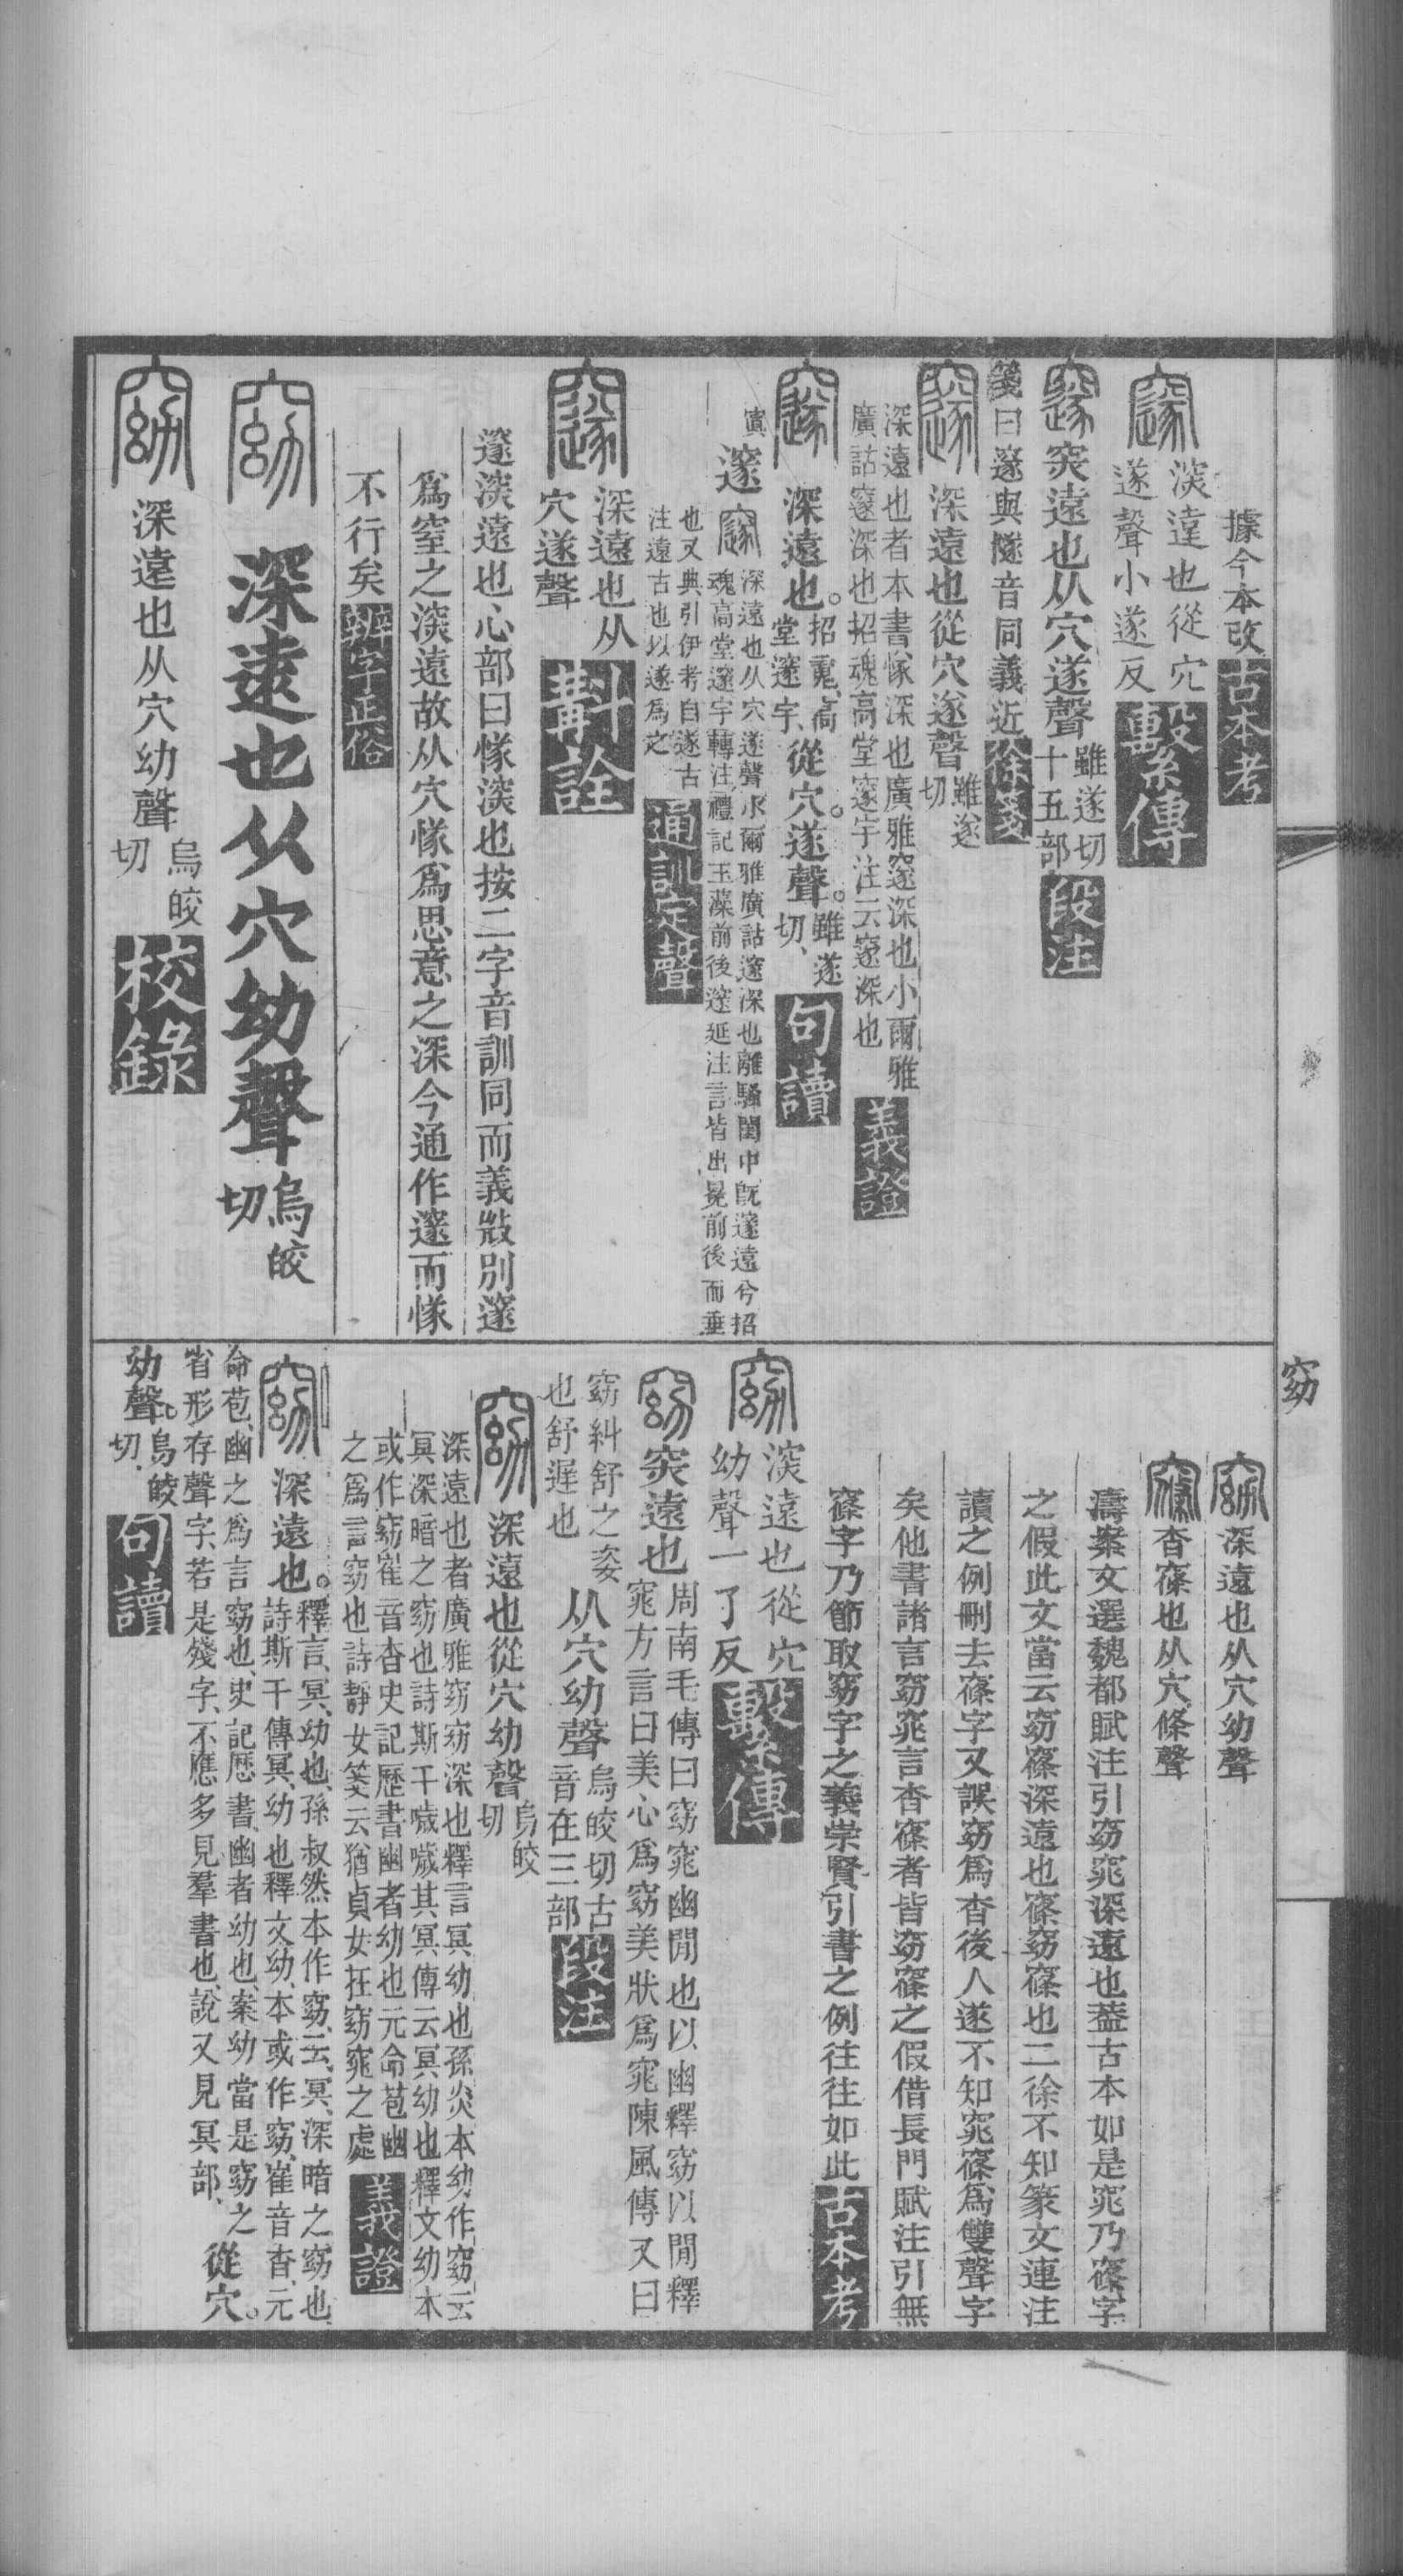 據今本改古本考
深遠也從穴
遂聲小遂反
繫傳
突遠也从穴遂聲
雖遂切
十五部
段注
箋曰邃與隧音同義近徐箋
深遠也從穴遂聲
雖遂
切
深遠也者本書㒸深也廣雅邃深也小爾雅
廣詁邃深也招魂高堂邃宇注云邃深也
義證
深遠也。
招䰟高
堂邃宇、
從穴。遂聲。
雖遂
切、
句讀
邃
深遠也从穴遂聲小爾雅廣詁邃深也離騷閨中既邃遠兮招
魂高堂邃宇轉注禮記玉藻前後邃延注言皆出冕前後而垂
也又典引伊考自遂古
注遠古也以遂爲之
通訓定聲
深遠也从
穴遂聲
斠詮
邃深遠也心部曰㥞深也按二字音訓同而義㪚別邃
爲窒之深遠故从穴㥞爲思意之深今通作邃而㥞
不行矣辨字正俗
深遠也从穴幼聲
烏皎
切
深遠也从穴幼聲
烏皎
切
校錄
窈
深遠也从穴幼聲
杳窱也从穴條聲
濤案文選魏都賦注引窈窕深遠也葢古本如是窕乃窱字
之假此文當云窈窱深遠也窱窈窱也二徐不知篆文連注
讀之例刪去窱字又誤窈爲杳後人遂不知窕窱爲雙聲字
矣他書諸言窈窕言杳窱者皆窈窱之假借長門賦注引無
窱字乃節取窈字之義崇賢引書之例往往如此古本考
深遠也從穴
幼聲一了反
繫傳
突遠也
周南毛傳曰窈窕幽閒也以幽釋窈以閒釋
窕方言曰美心爲窈美狀爲窕陳風傳又曰
窈糾舒之姿
也舒遲也
从穴幼聲
烏皎切古
音在三部
段注
深遠也從穴幼聲
烏皎
切
深遠也者廣雅窈窈深也釋言冥幼也孫炎本幼作窈云
冥深暗之窈也詩斯干噦噦其冥傳云冥幼也釋文幼本
或作窈崔音杳史記歷書幽者幼也元命苞幽
之爲言窈也詩靜女箋云猶貞女在窈窕之處
義證
深遠也。
釋言、冥、幼也、孫叔然本作窈、云、冥、深暗之窈也
詩斯干傳、冥、幼也、釋文、幼、本或作窈、崔音杳、元
命苞、幽之爲言窈也、史記歷書、幽者幼也、案幼當是窈之
省形存聲字、若是殘字、不應多見羣書也、說又見冥部、
從穴。
幼聲。
烏皎
切、
句讀